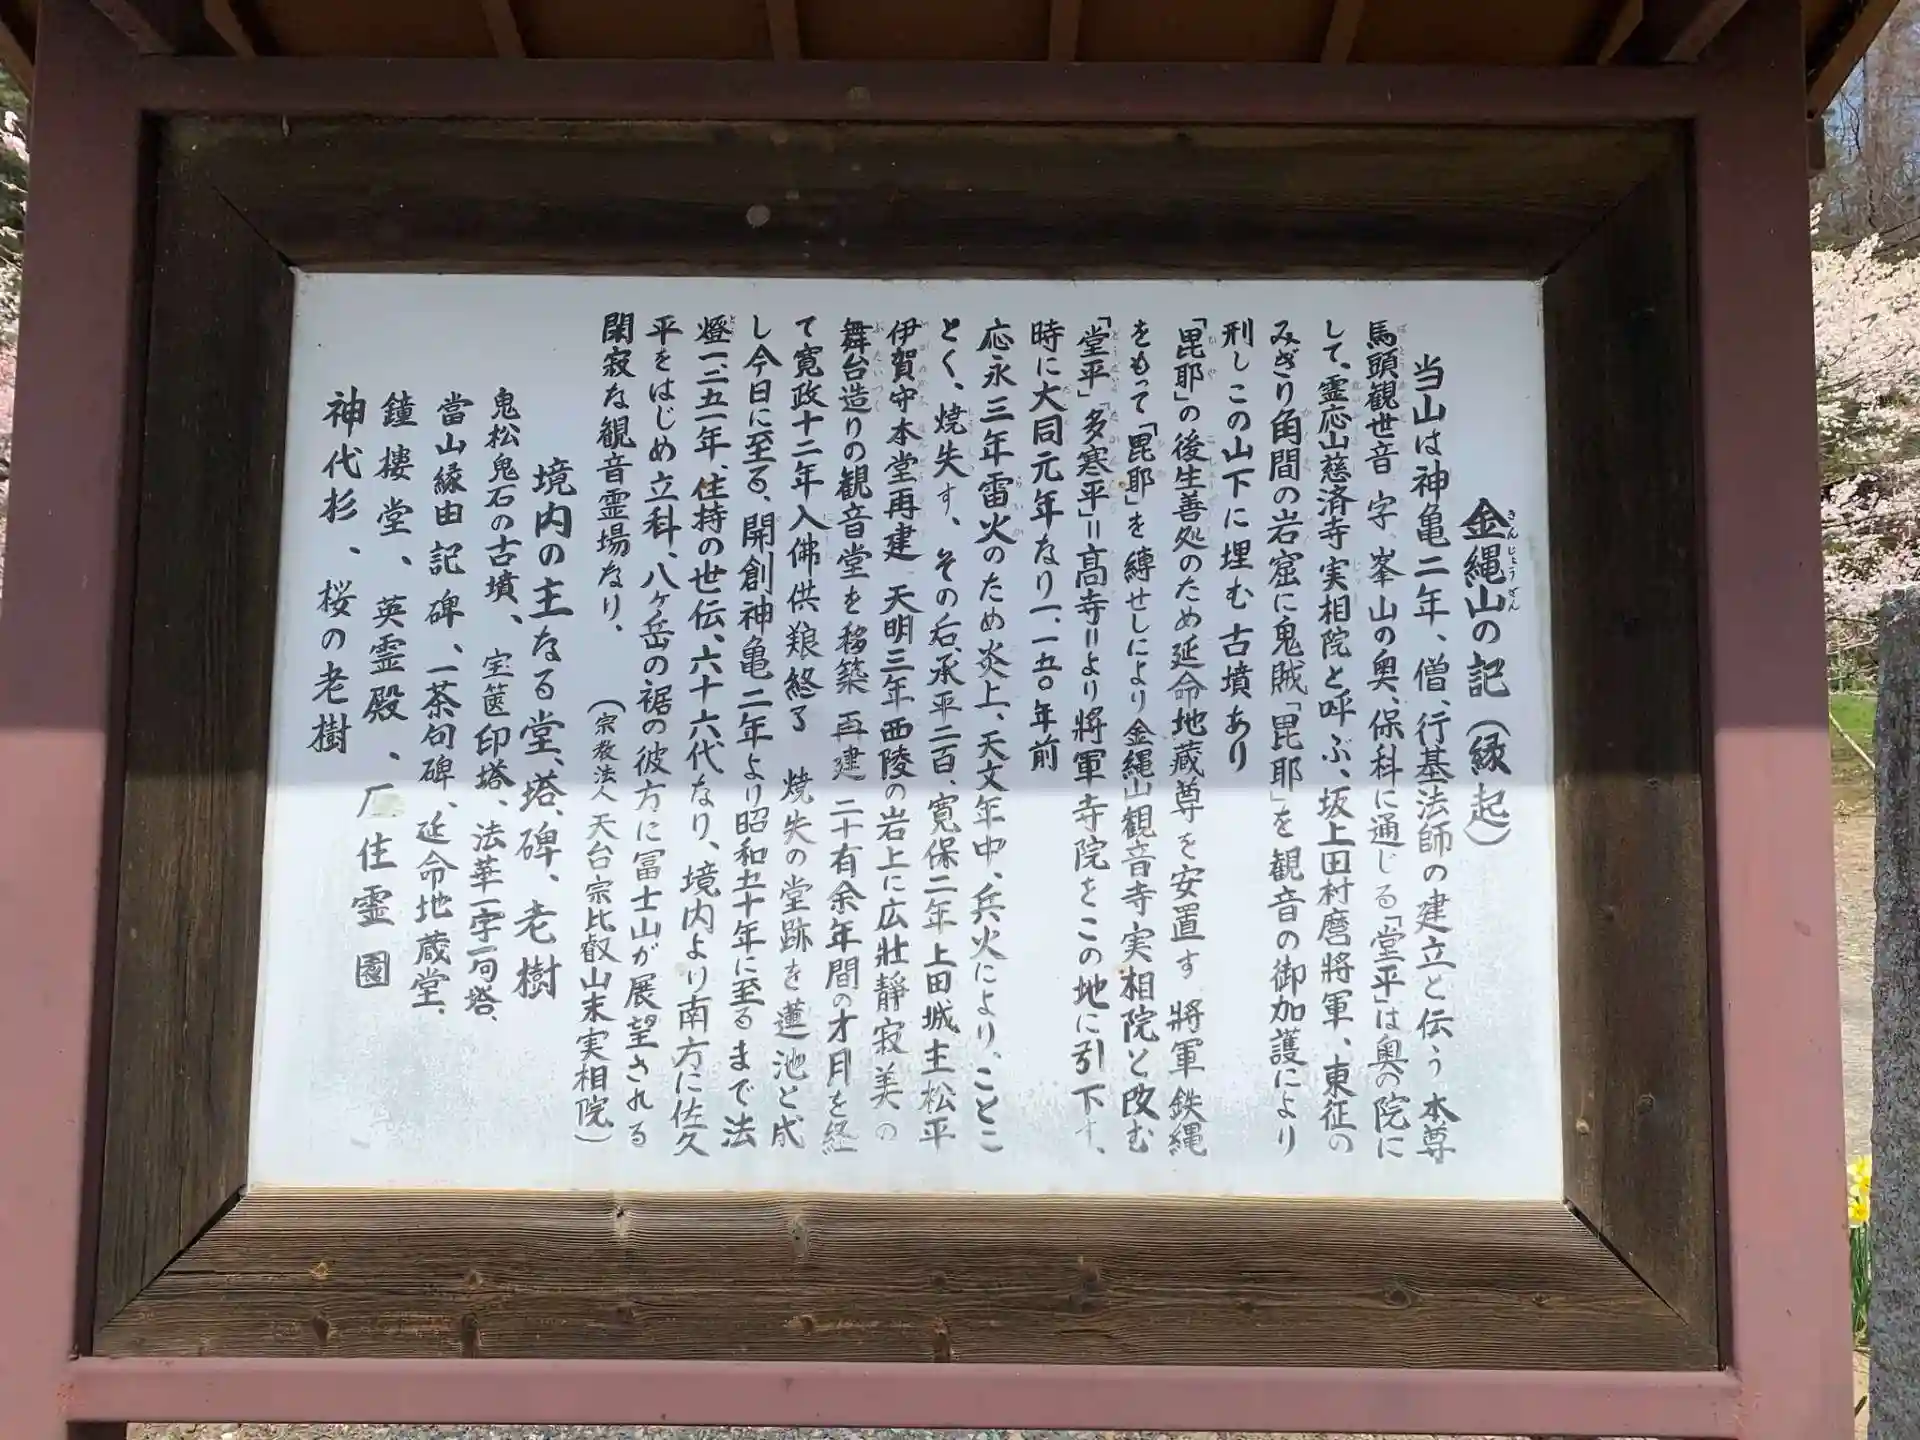 金縄山の記（縁起）
当山は神亀二年、僧、行基法師の建立と伝う 本尊
馬頭観世音 字、峯山の奥、保科に通じる「堂平」は奥の院に
して、霊応山慈済寺実相院と呼ぶ、坂上田村麿將軍、東征の
みぎり角間の岩窟に鬼賊「毘耶」を観音の御加護により
刑しこの山下に埋む古墳あり
「毘耶」の後生善処のため延命地蔵尊を安置す 將軍 鉄縄
をもって「毘耶」を縛せしにより金縄山観音寺実相院と改む
「堂平」「多寒平」＝髙寺＝より將軍寺院をこの地に引下す、
時に大同元年なり一、一五〇年前
応永三年雷火のため炎上、天文年中、兵火により、ことご
とく、焼失す、その后、承平二百、寛保二年上田城主松平
伊賀守本堂再建 天明三年西陵の岩上に広壮静寂美の
舞台造りの観音堂を移築 再建 二十有余年間の才月を経
て寛政十二年入佛供粮終了 焼失の堂跡を蓮池と成
し今日に至る、開創神亀二年より昭和五十年に至るまで法
燈一、二五一年、住持の世伝、六十六代なり、境内より南方に佐久
平をはじめ立科、八ヶ岳の裾の彼方に冨士山が展望される
閑寂な観音霊場なり、
（宗教法人天台宗比叡山末実相院）
境内の主なる堂、塔、碑、老樹
鬼松鬼石の古墳、宝篋印塔、法華一字一句塔、
當山縁由記碑、一茶句碑、延命地蔵堂、
鐘樓堂、英霊殿、厂住霊園
神代杉、桜の老樹